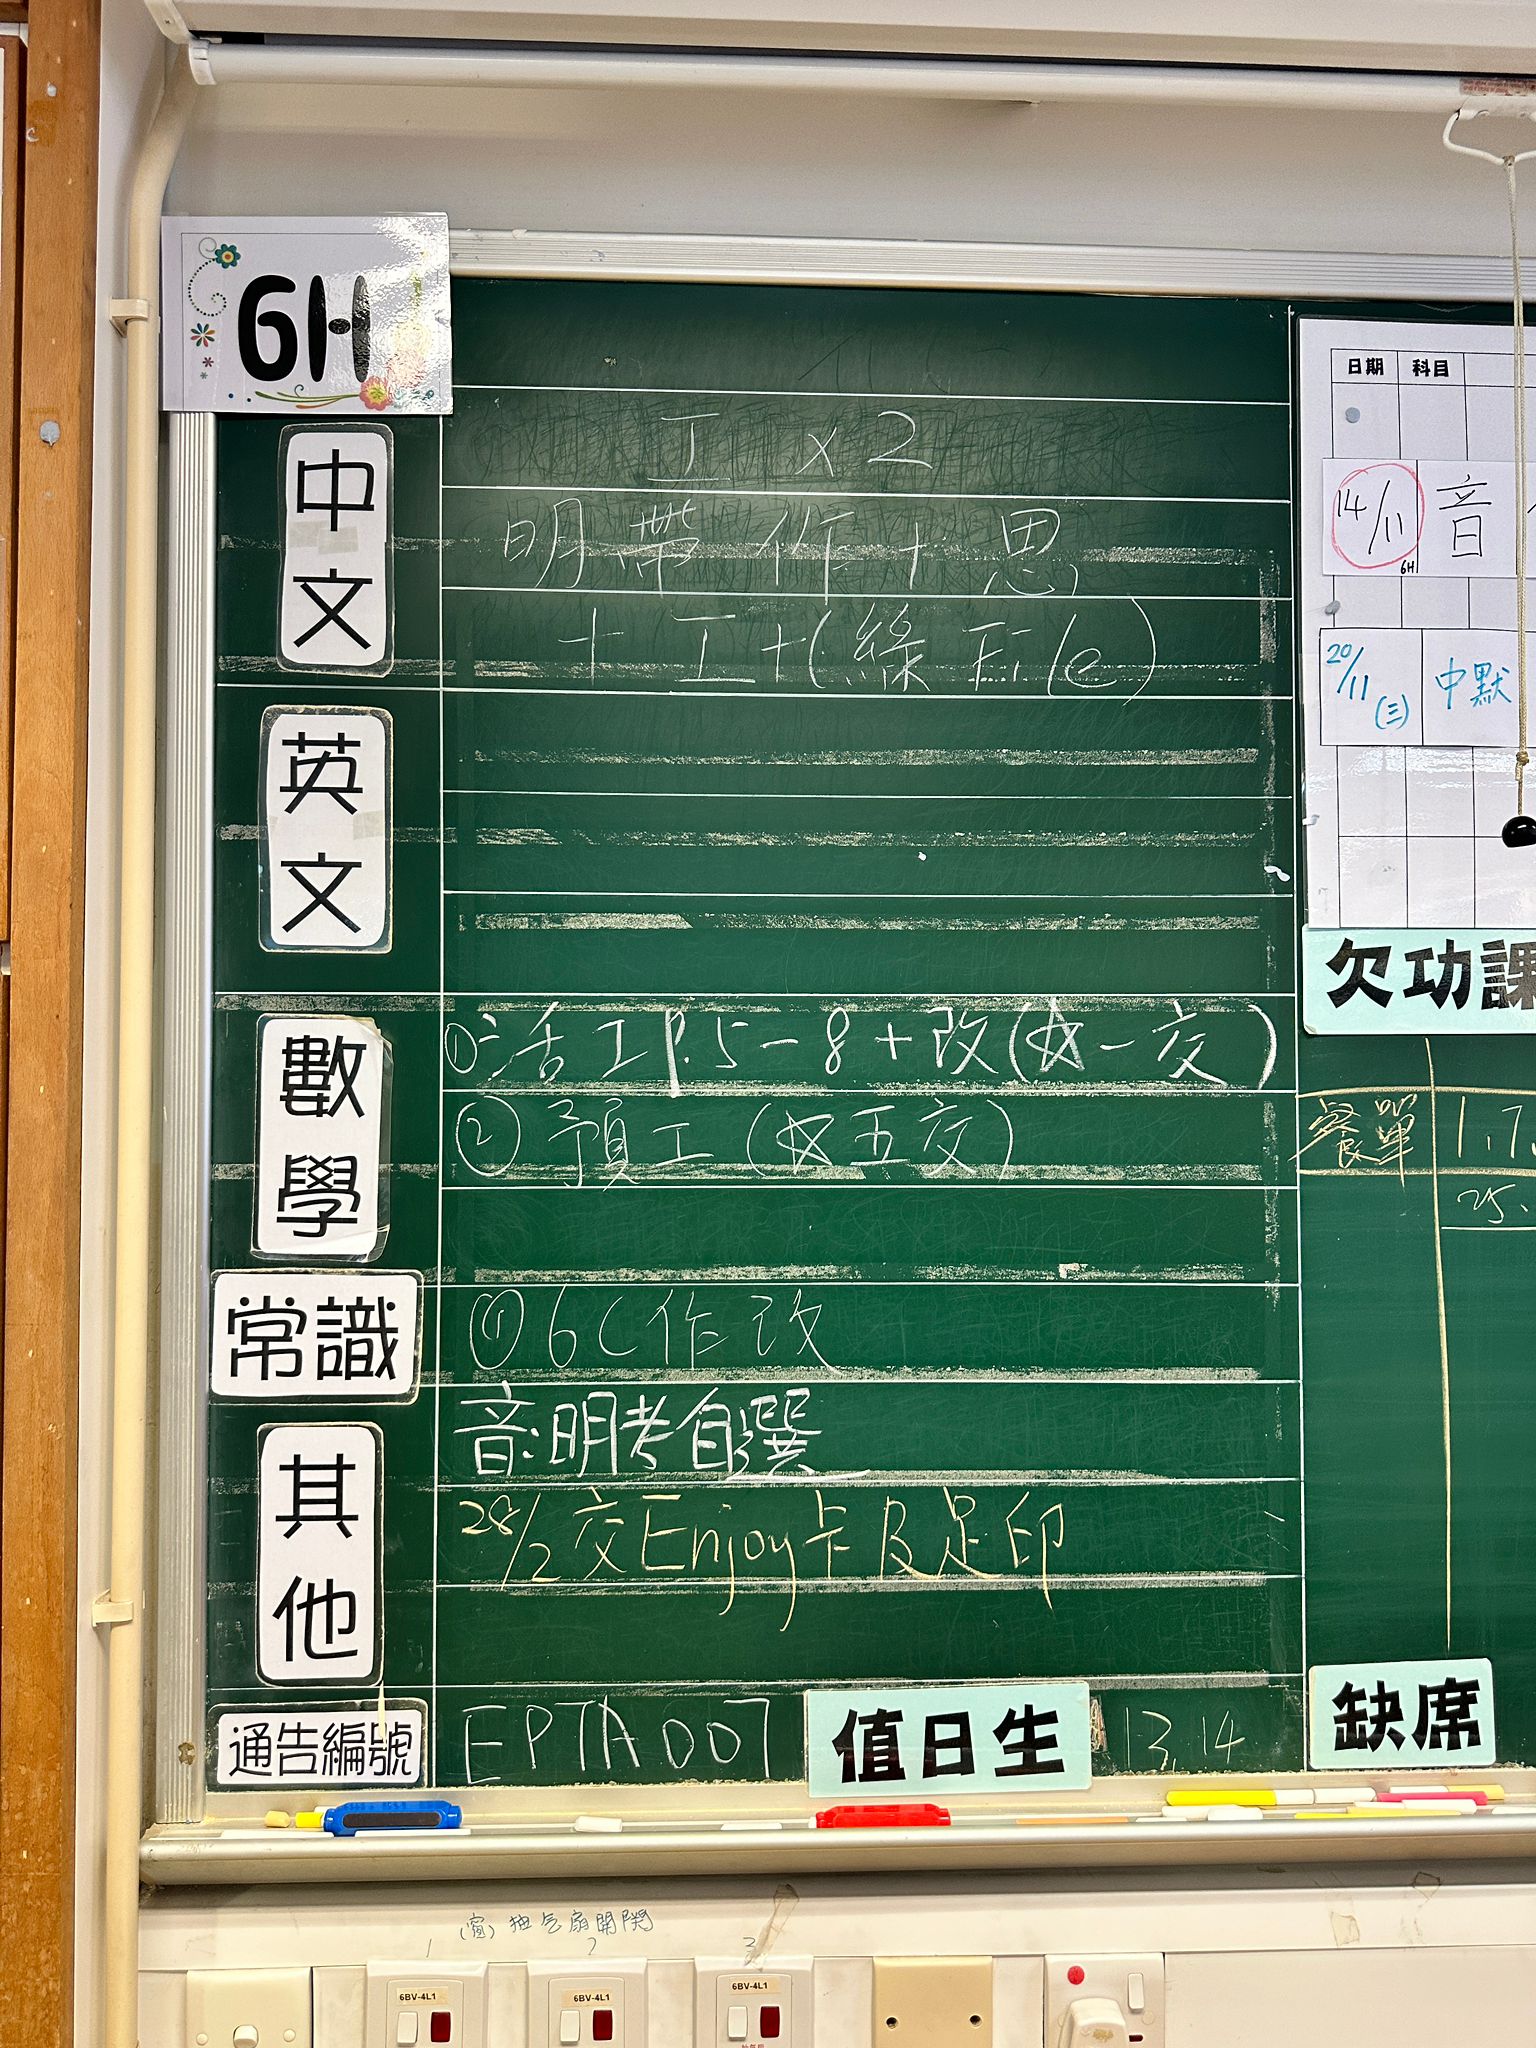 6H
日期 科目
中文
工 x 2
明帶作+思
+工+(綠File)
14/11 音
6H
20/11 (三) 中默
英文
欠功課
數學
①活工P.5-8+改(☆一交)
②預工(☆五交)
餐單 1.7.
25.
常識
① 6C作改
其他
音:明考自選
28/2交Enjoy卡及足印
通告編號
EPTA007
值日生
13.14
缺席
(窗) 抽气扇開関
1 2 3
6BV-4L1
6BV-4L1
6BV-4L1